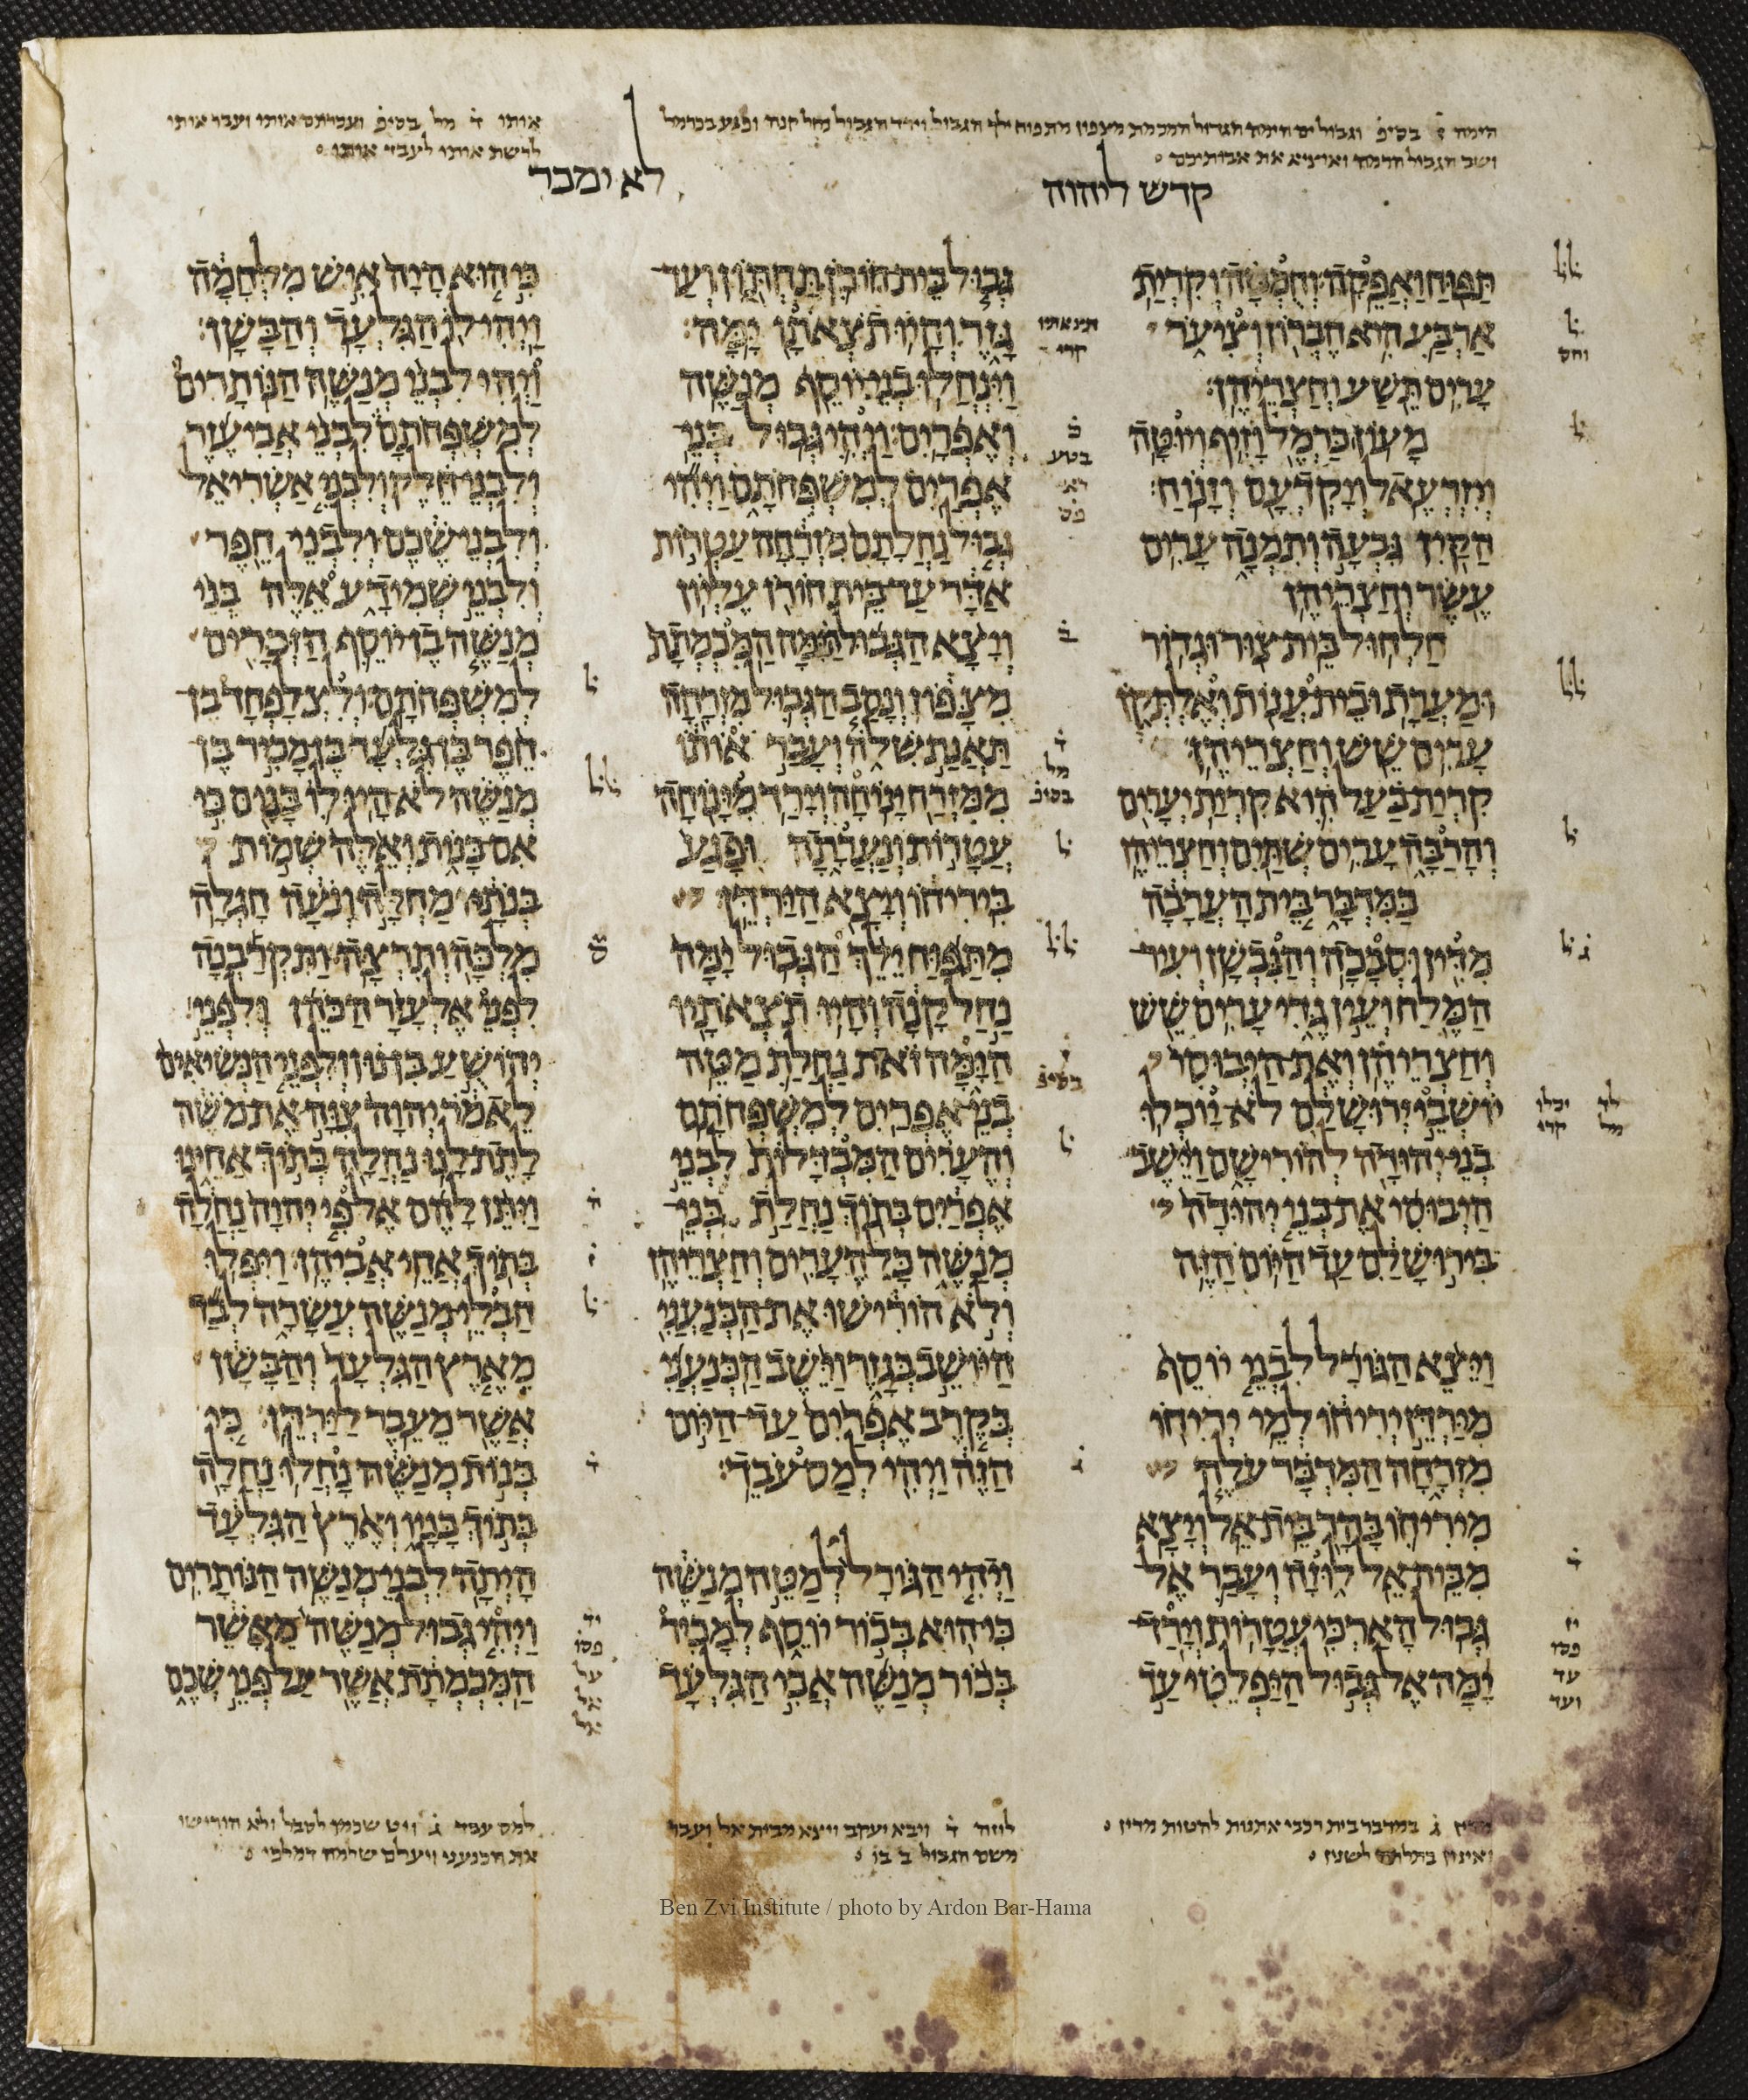 הימה בסיפ וגבול ים הימה הגדול המכמת מצפון מתפוח ילך הגבול וירד הגבול נחל קנה ופגע בכרמל
ושב הגבול הרמה ואוציא את אבותיכם
אותו ד מל בסיפ ועברתם אותו ועבר אותו
לרשת אותו לעבד אותו
קדש ליהוה
לא ימכר
תפוח ואפקה וחמטה וקרית
ארבע היא חברון וציער
ערים תשע וחצריהן׃
מעון כרמל וזיף ויוטה
ויזרעאל ויקדעם וזנוח׃
הקין גבעה ותמנה ערים
עשר וחצריהן
חלחול בית צור וגדור
ומערת ובית ענות ואלתקן
ערים שש וחצריהן׃
קרית בעל היא קרית יערים
והרבה ערים שתים וחצריהן
במדבר בית הערבה
מדין וסככה והנבשן ועיר
המלח ועין גדי ערים שש
וחצריהן ואת היבוסי
יושבי ירושלם לא יוכלו
בני יהודה להורישם וישב
היבוסי את בני יהודה
בירושלם עד היום הזה
ויצא הגורל לבני יוסף
מירדן יריחו למי יריחו
מזרחה המדבר עלה
מיריחו בהר בית אל ויצא
מבית אל לוזה ועבר אל
גבול הארכי עטרות וירד
ימה אל גבול היפלטי עד
גבול בית חורן תחתון ועד
גזר והיו תצאתו ימה׃
וינחלו בני יוסף מנשה
ואפרים׃ ויהי גבול בני
אפרים למשפחתם ויהי
גבול נחלתם מזרחה עטרות
אדר עד בית חורן עליון
ויצא הגבול הימה המכמתת
מצפון ונסב הגבול מזרחה
תאנת שלה ועבר אותו
ממזרח ינוחה וירד מינוחה
עטרות ונערתה ופגע
ביריחו ויצא הירדן
מתפוח ילך הגבול ימה
נחל קנה והיו תצאתיו
הימה זאת נחלת מטה
בני אפרים למשפחתם
והערים המבדלות לבני
אפרים בתוך נחלת בני
מנשה כל הערים וחצריהן
ולא הורישו את הכנעני
היושב בגזר וישב הכנעני
בקרב אפרים עד היום
הזה ויהי למס עבד׃
ויהי הגורל למטה מנשה
כי הוא בכור יוסף למכיר
בכור מנשה אבי הגלעד
כי הוא היה איש מלחמה
ויהי לו הגלעד והבשן׃
ויהי לבני מנשה הנותרים
למשפחתם לבני אביעזר
ולבני חלק ולבני אשריאל
ולבני שכם ולבני חפר
ולבני שמידע אלה בני
מנשה בן יוסף הזכרים
למשפחתם ולצלפחד בן
חפר בן גלעד בן מכיר בן
מנשה לא היו לו בנים כי
אם בנות ואלה שמות
בנתיו מחלה ונעה חגלה
מלכה ותרצה׃ ותקרבנה
לפני אלעזר הכהן ולפני
יהושע בן נון ולפני הנשיאים
לאמר יהוה צוה את משה
לתת לנו נחלה בתוך אחינו
ויתן להם אל פי יהוה נחלה
בתוך אחי אביהן׃ ויפלו
חבלי מנשה עשרה לבד
מארץ הגלעד והבשן
אשר מעבר לירדן׃ כי
בנות מנשה נחלו נחלה
בתוך בניו וארץ הגלעד
היתה לבני מנשה הנותרים
ויהי גבול מנשה מאשר
המכמתת אשר על פני שכם
במדבר בית רכבי אתנות לחטות מדין
לוזה ד ויבא יעקב ויצא מבית אל ועבר
משם הגבול
למס עבד ג ויט שכמו לסבל ולא הורישו
את הכנעני
Ben Zvi Institute / photo by Ardon Bar-Hama